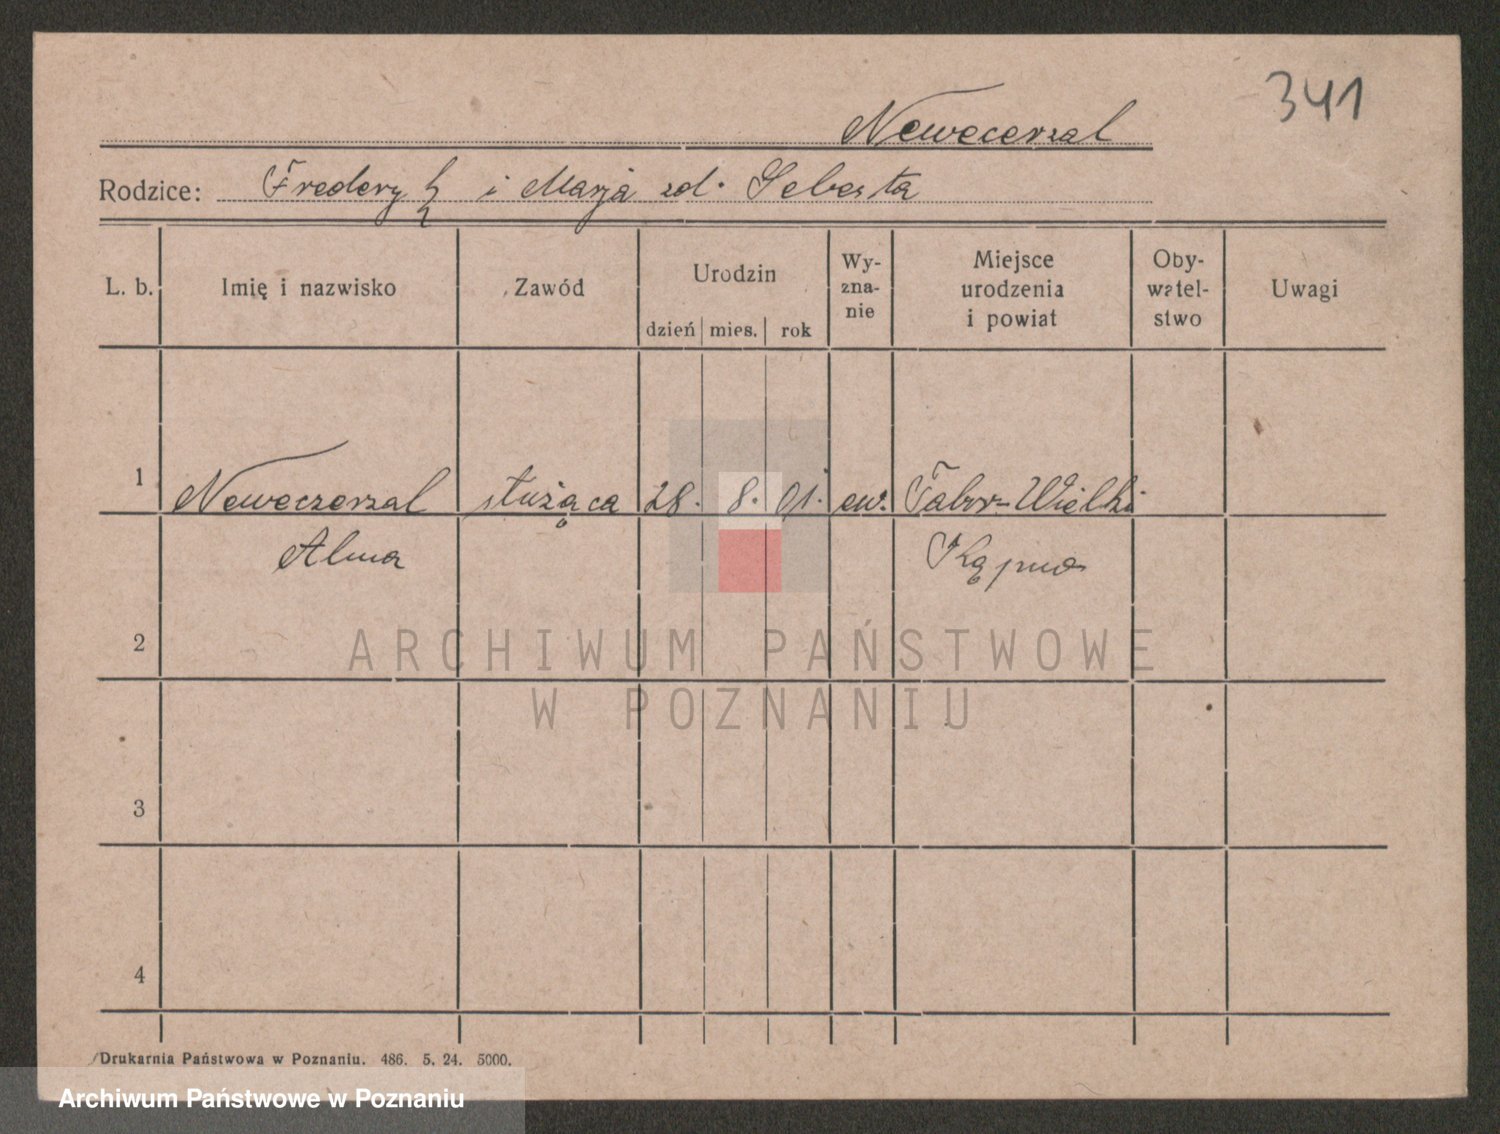 341
Newecerzal
Rodzice: Frederyk i Marja zd. Sebesta
L. b. Imię i nazwisko Zawód Urodzin dzień mies. rok Wy-zna-nie Miejsce urodzenia i powiat Oby-watel-stwo Uwagi
1 Neweczerzal służąca 28. 8. 01. ew. Tabor-Wielki
Alma Kępno
2
ARCHIWUM PAŃSTWOWE
W POZNANIU
3
4
Drukarnia Państwowa w Poznaniu. 486. 5. 24. 5000.
Archiwum Państwowe w Poznaniu